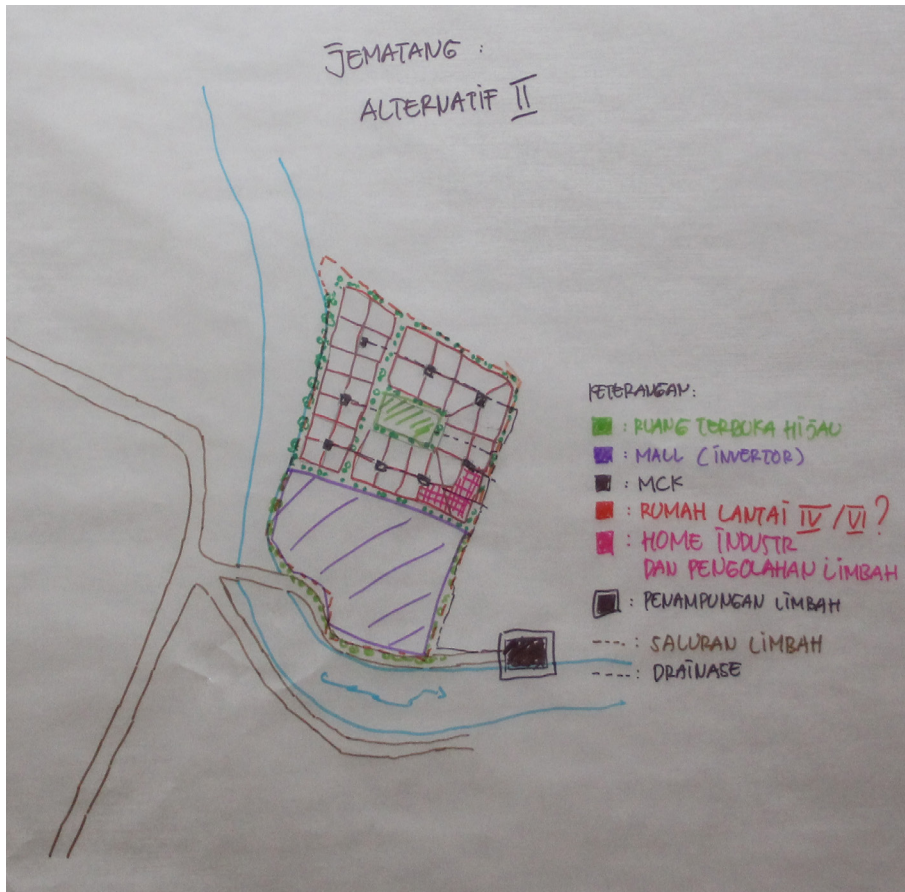 JEMATANG :
ALTERNATIF II
KETERANGAN:
: RUANG TERBUKA HIJAU
: MALL (INVERTOR)
: MCK
: RUMAH LANTAI IV / VI ?
: HOME INDUSTR
DAN PENGOLAHAN LIMBAH
: PENAMPUNGAN LIMBAH
----: SALURAN LIMBAH
-----: DRAINASE